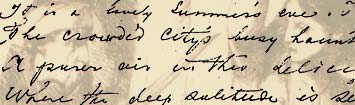 It is a lovely Summer's eve. I
The crowded City's busy haunt
A purer air in this delici
Where the deep solitude is s